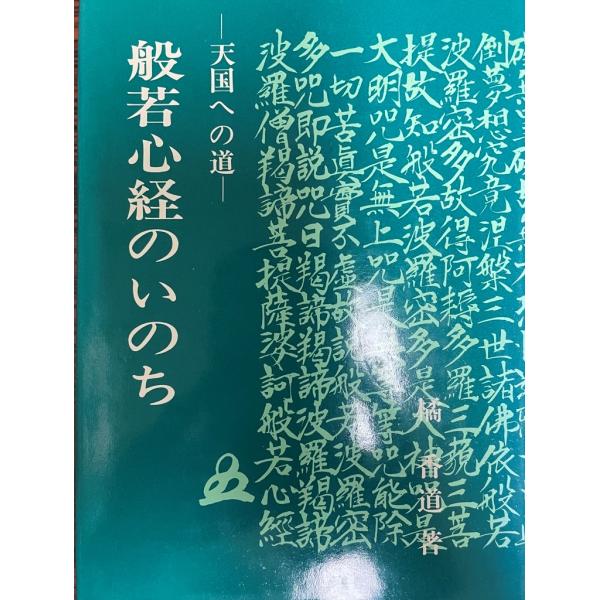 倒夢想究竟涅槃三世諸佛依般若
波羅密多故得阿耨多羅三藐三菩
提故知般若波羅密多是大神咒是
大明咒是無上咒是無等等咒能除
一切苦眞實不虛故說般若波羅密
多咒即説咒曰羯諦羯諦波羅羯諦
波羅僧羯諦菩提薩婆訶般若心經
橘香道著
―天国への道―
般若心経のいのち